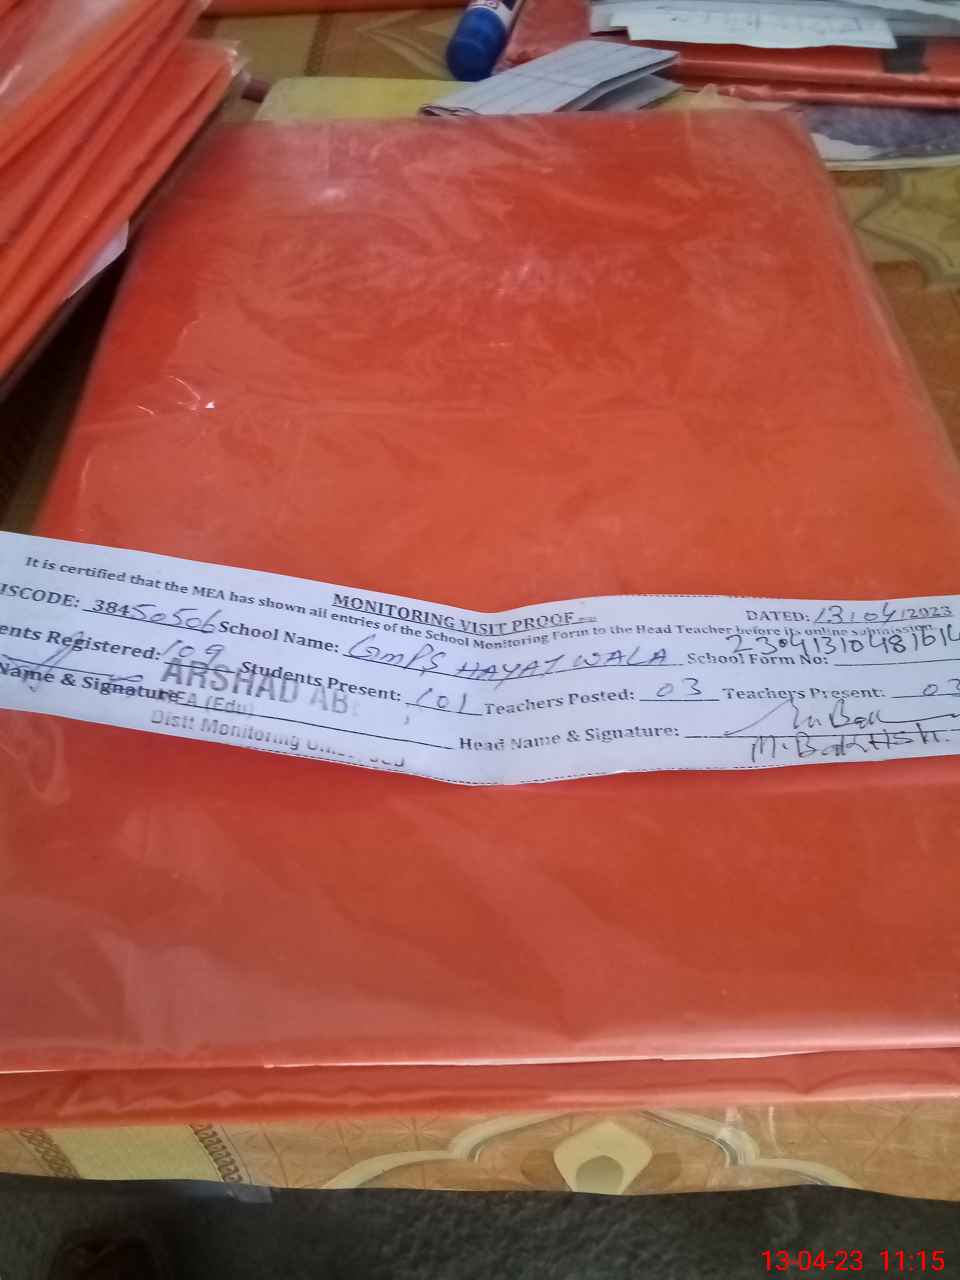 MONITORING VISIT PROOF
DATED: 13/04/2023
It is certified that the MEA has shown all entries of the School Monitoring Form to the Head Teacher before its online submission.
ISCODE: 38450506 School Name: GMPS HAYAT WALA School Form No:
ents Registered: 109 Students Present: 101 Teachers Posted: 03 Teachers Present: 03
Name & Signature Head Name & Signature:
ARSHAD AB
MEA (Edu)
Distt Monitoring
M. Bakhsh
13-04-23 11:15